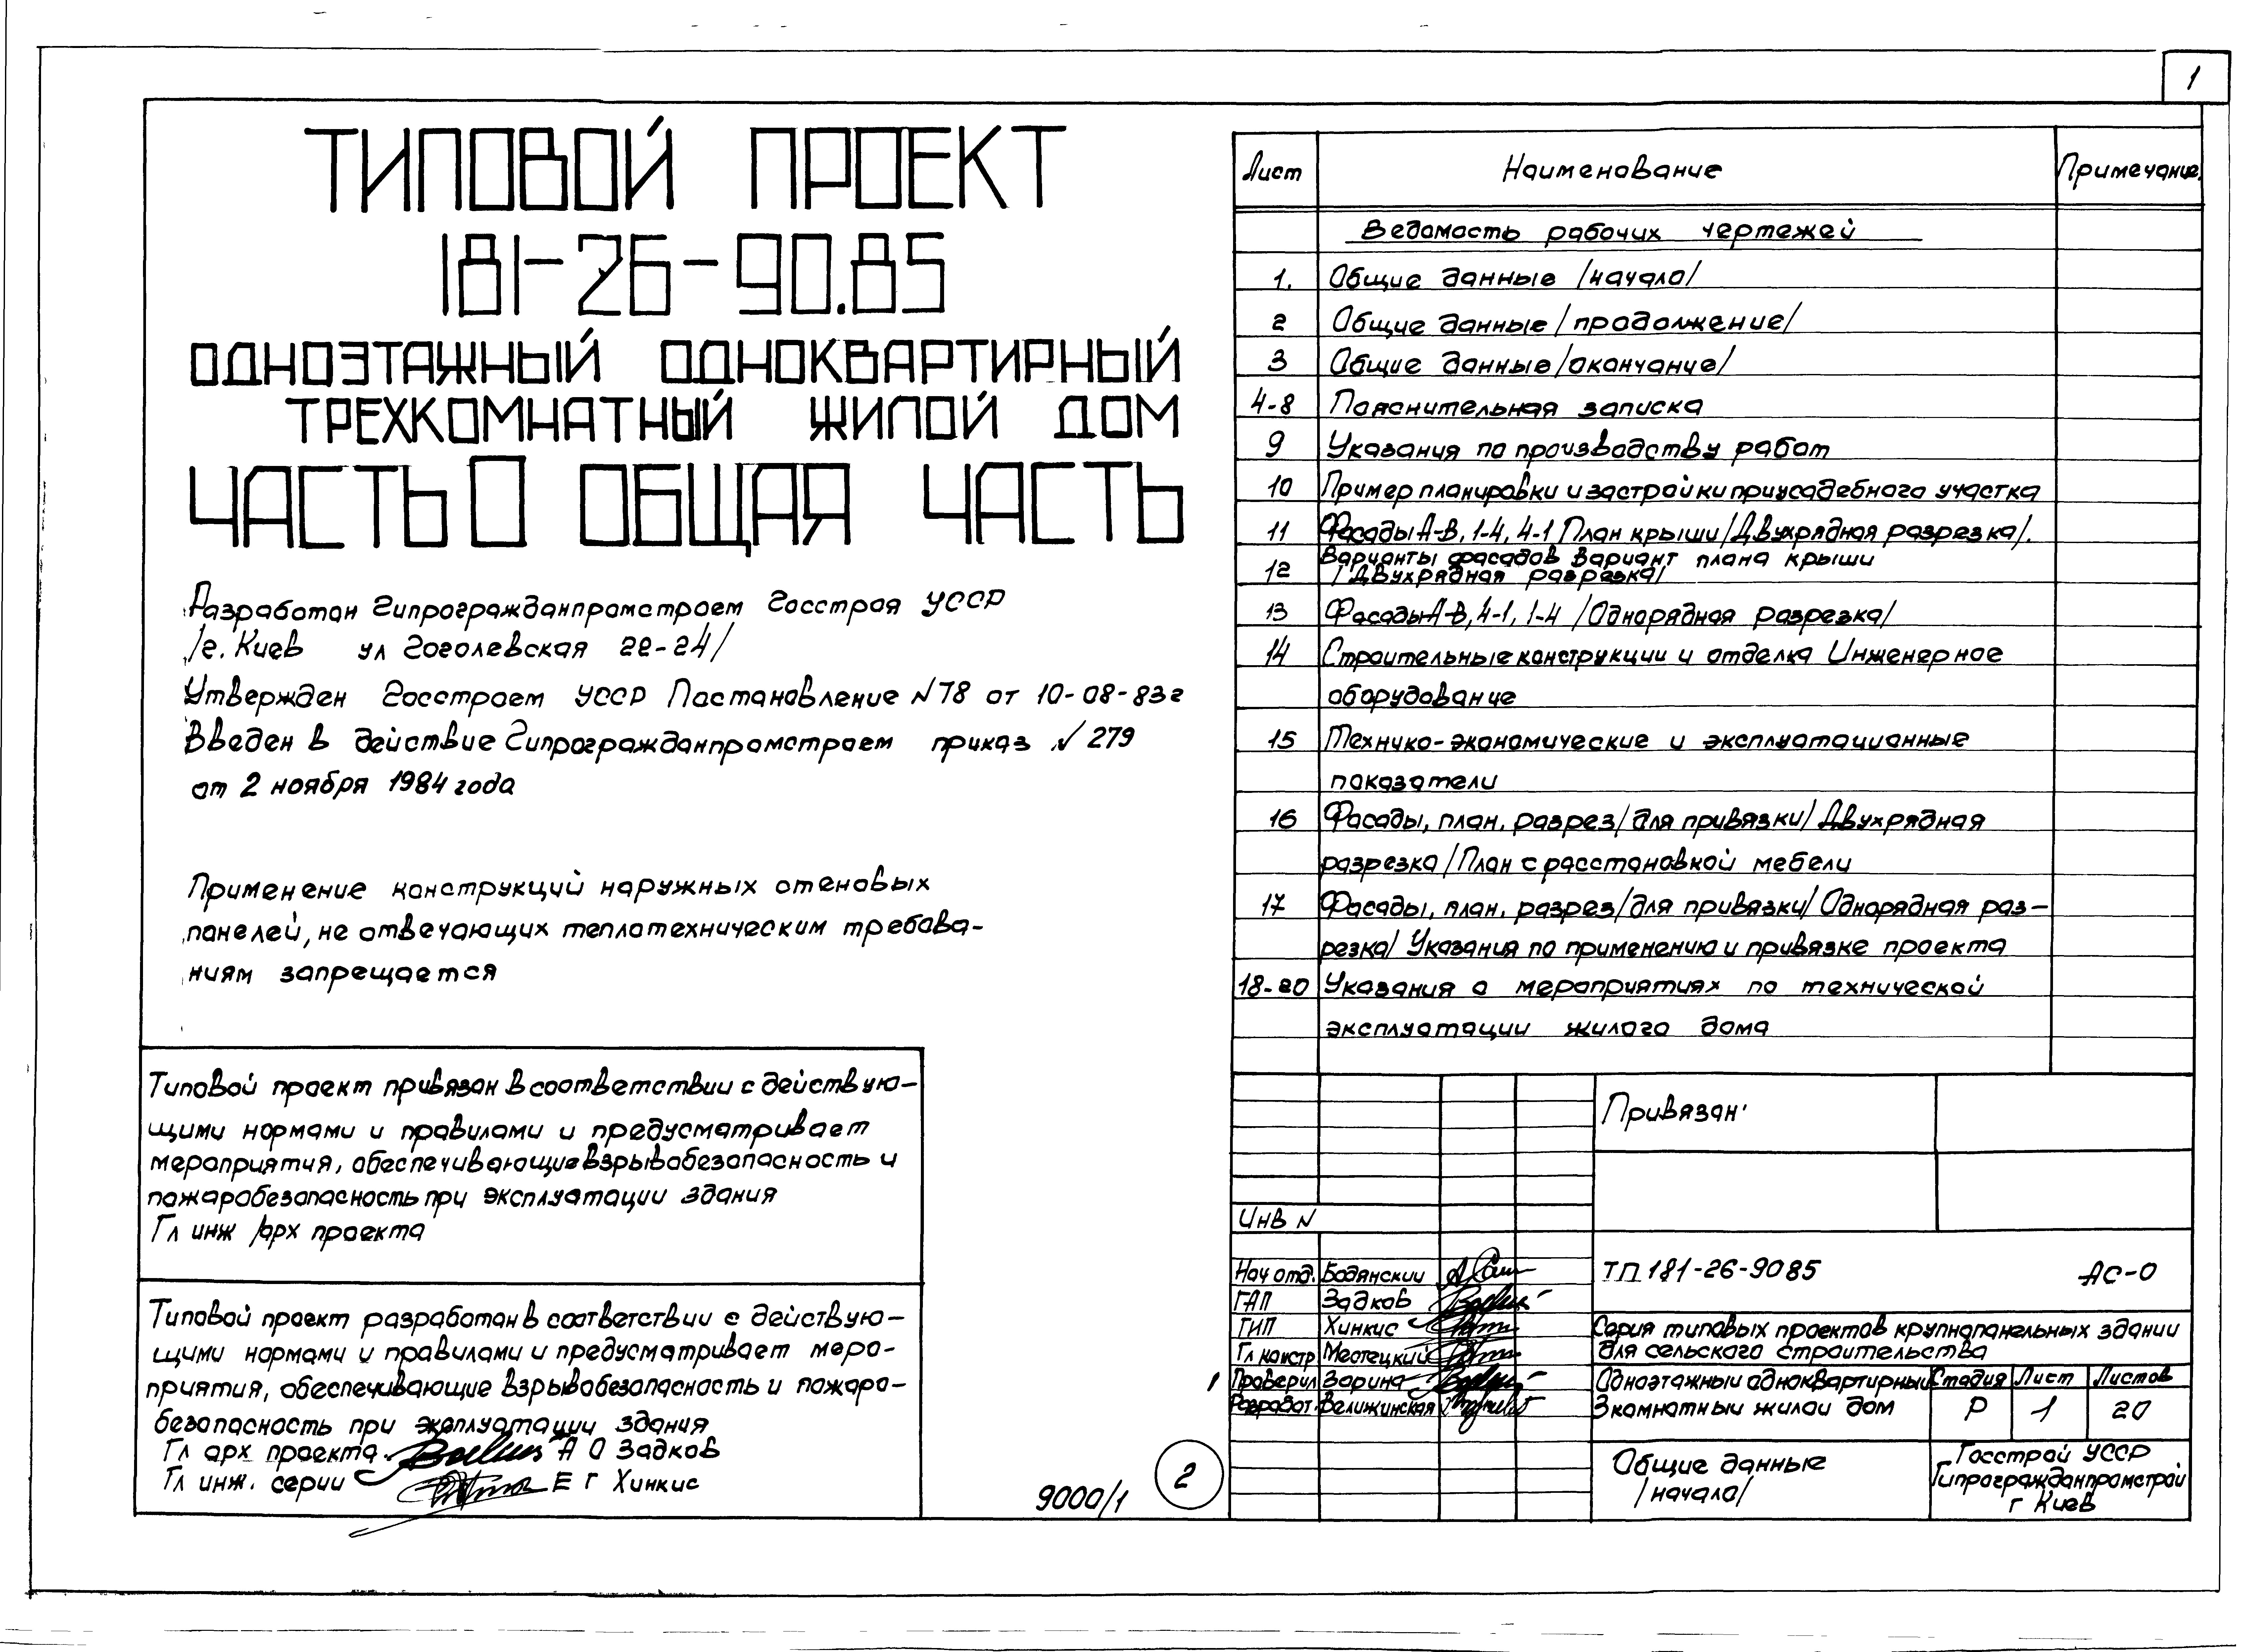 1
ТИПОВОЙ ПРОЕКТ
181-26-90.85
ОДНОЭТАЖНЫЙ ОДНОКВАРТИРНЫЙ
ТРЕХКОМНАТНЫЙ ЖИЛОЙ ДОМ
ЧАСТЬ 0 ОБЩАЯ ЧАСТЬ
Разработан Гипрогражданпромстроем Госстроя УССР
/г. Киев ул Гоголевская 22-24/
Утвержден Госстроем УССР Постановление №78 от 10-08-83г
Введен в действие Гипрогражданпромстроем приказ № 279
от 2 ноября 1984 года
Применение конструкций наружных стеновых
панелей, не отвечающих теплотехническим требова-
ниям запрещается
Типовой проект привязан в соответствии с действую-
щими нормами и правилами и предусматривает
мероприятия, обеспечивающие взрывобезопасность и
пожаробезопасность при эксплуатации здания
Гл инж /арх проекта
Типовой проект разработан в соответствии с действую-
щими нормами и правилами и предусматривает меро-
приятия, обеспечивающие взрывобезопасность и пожаро-
безопасность при эксплуатации здания
Гл арх проекта А О Задков
Гл инж. серии Е Г Хинкис
9000/1
2
Лист Наименование Примечание
Ведомость рабочих чертежей
1. Общие данные /начало/
2 Общие данные /продолжение/
3 Общие данные /окончание/
4-8 Пояснительная записка
9 Указания по производству работ
10 Пример планировки и застройки приусадебного участка
11 Фасады А-В, 1-4, 4-1 План крыши /Двухрядная разрезка/.
12 Варианты фасадов Вариант плана крыши
/Двухрядная разрезка/
13 Фасады А-В, 4-1, 1-4 /Однорядная разрезка/
14 Строительные конструкции и отделка Инженерное
оборудование
15 Технико-экономические и эксплуатационные
показатели
16 Фасады, план, разрез /для привязки/ Двухрядная
разрезка /План с расстановкой мебели
17 Фасады, план, разрез /для привязки/ Однорядная раз-
резка/ Указания по применению и привязке проекта
18-20 Указания о мероприятиях по технической
эксплуатации жилого дома
Привязан:
Инв N
Нач отд. Бодянский
ГАП Задков
ГИП Хинкис
Гл констр Местецкий
1 Проверил Зорина
Разработ. Велижинская
ТП 181-26-9085 АС-0
Серия типовых проектов крупнопанельных здании
для сельского строительства
Одноэтажный одноквартирный
3комнатный жилой дом
Стадия Лист Листов
Р 1 20
Общие данные
/начало/
Госстрой УССР
Гипрогражданпромстрой
г Киев